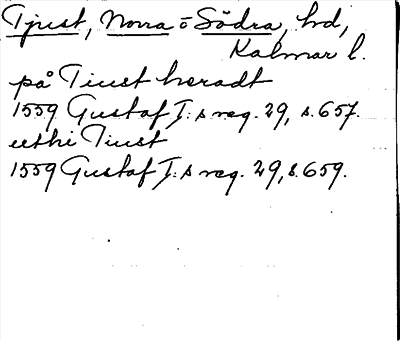 Tjust, Norra o Södra, hd,
Kalmar l.
på Tiust heradt
1559 Gustaf I:s reg. 29, s. 657.
uthi Tiust
1559 Gustaf I:s reg. 29, s. 659.